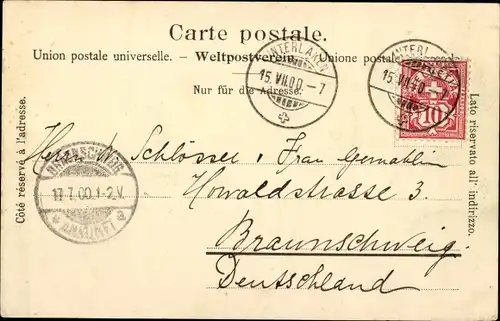 Carte postale.
Union postale universelle. – Weltpostverein. – Unione postale
Nur für die Adresse.
Côté réservé à l'adresse.
Lato riservato all' indirizzo.
INTERLAKEN
15.VII.00.-7
15.VII.00.-7
HELVETIA
10
BRAUNSCHWEIG
17.7.00.1-2.V.
* ANKUNFT a
Herrn W. Schlösser u. Frau Gemahlin
Howaldstrasse 3.
Braunschweig.
Deutschland.